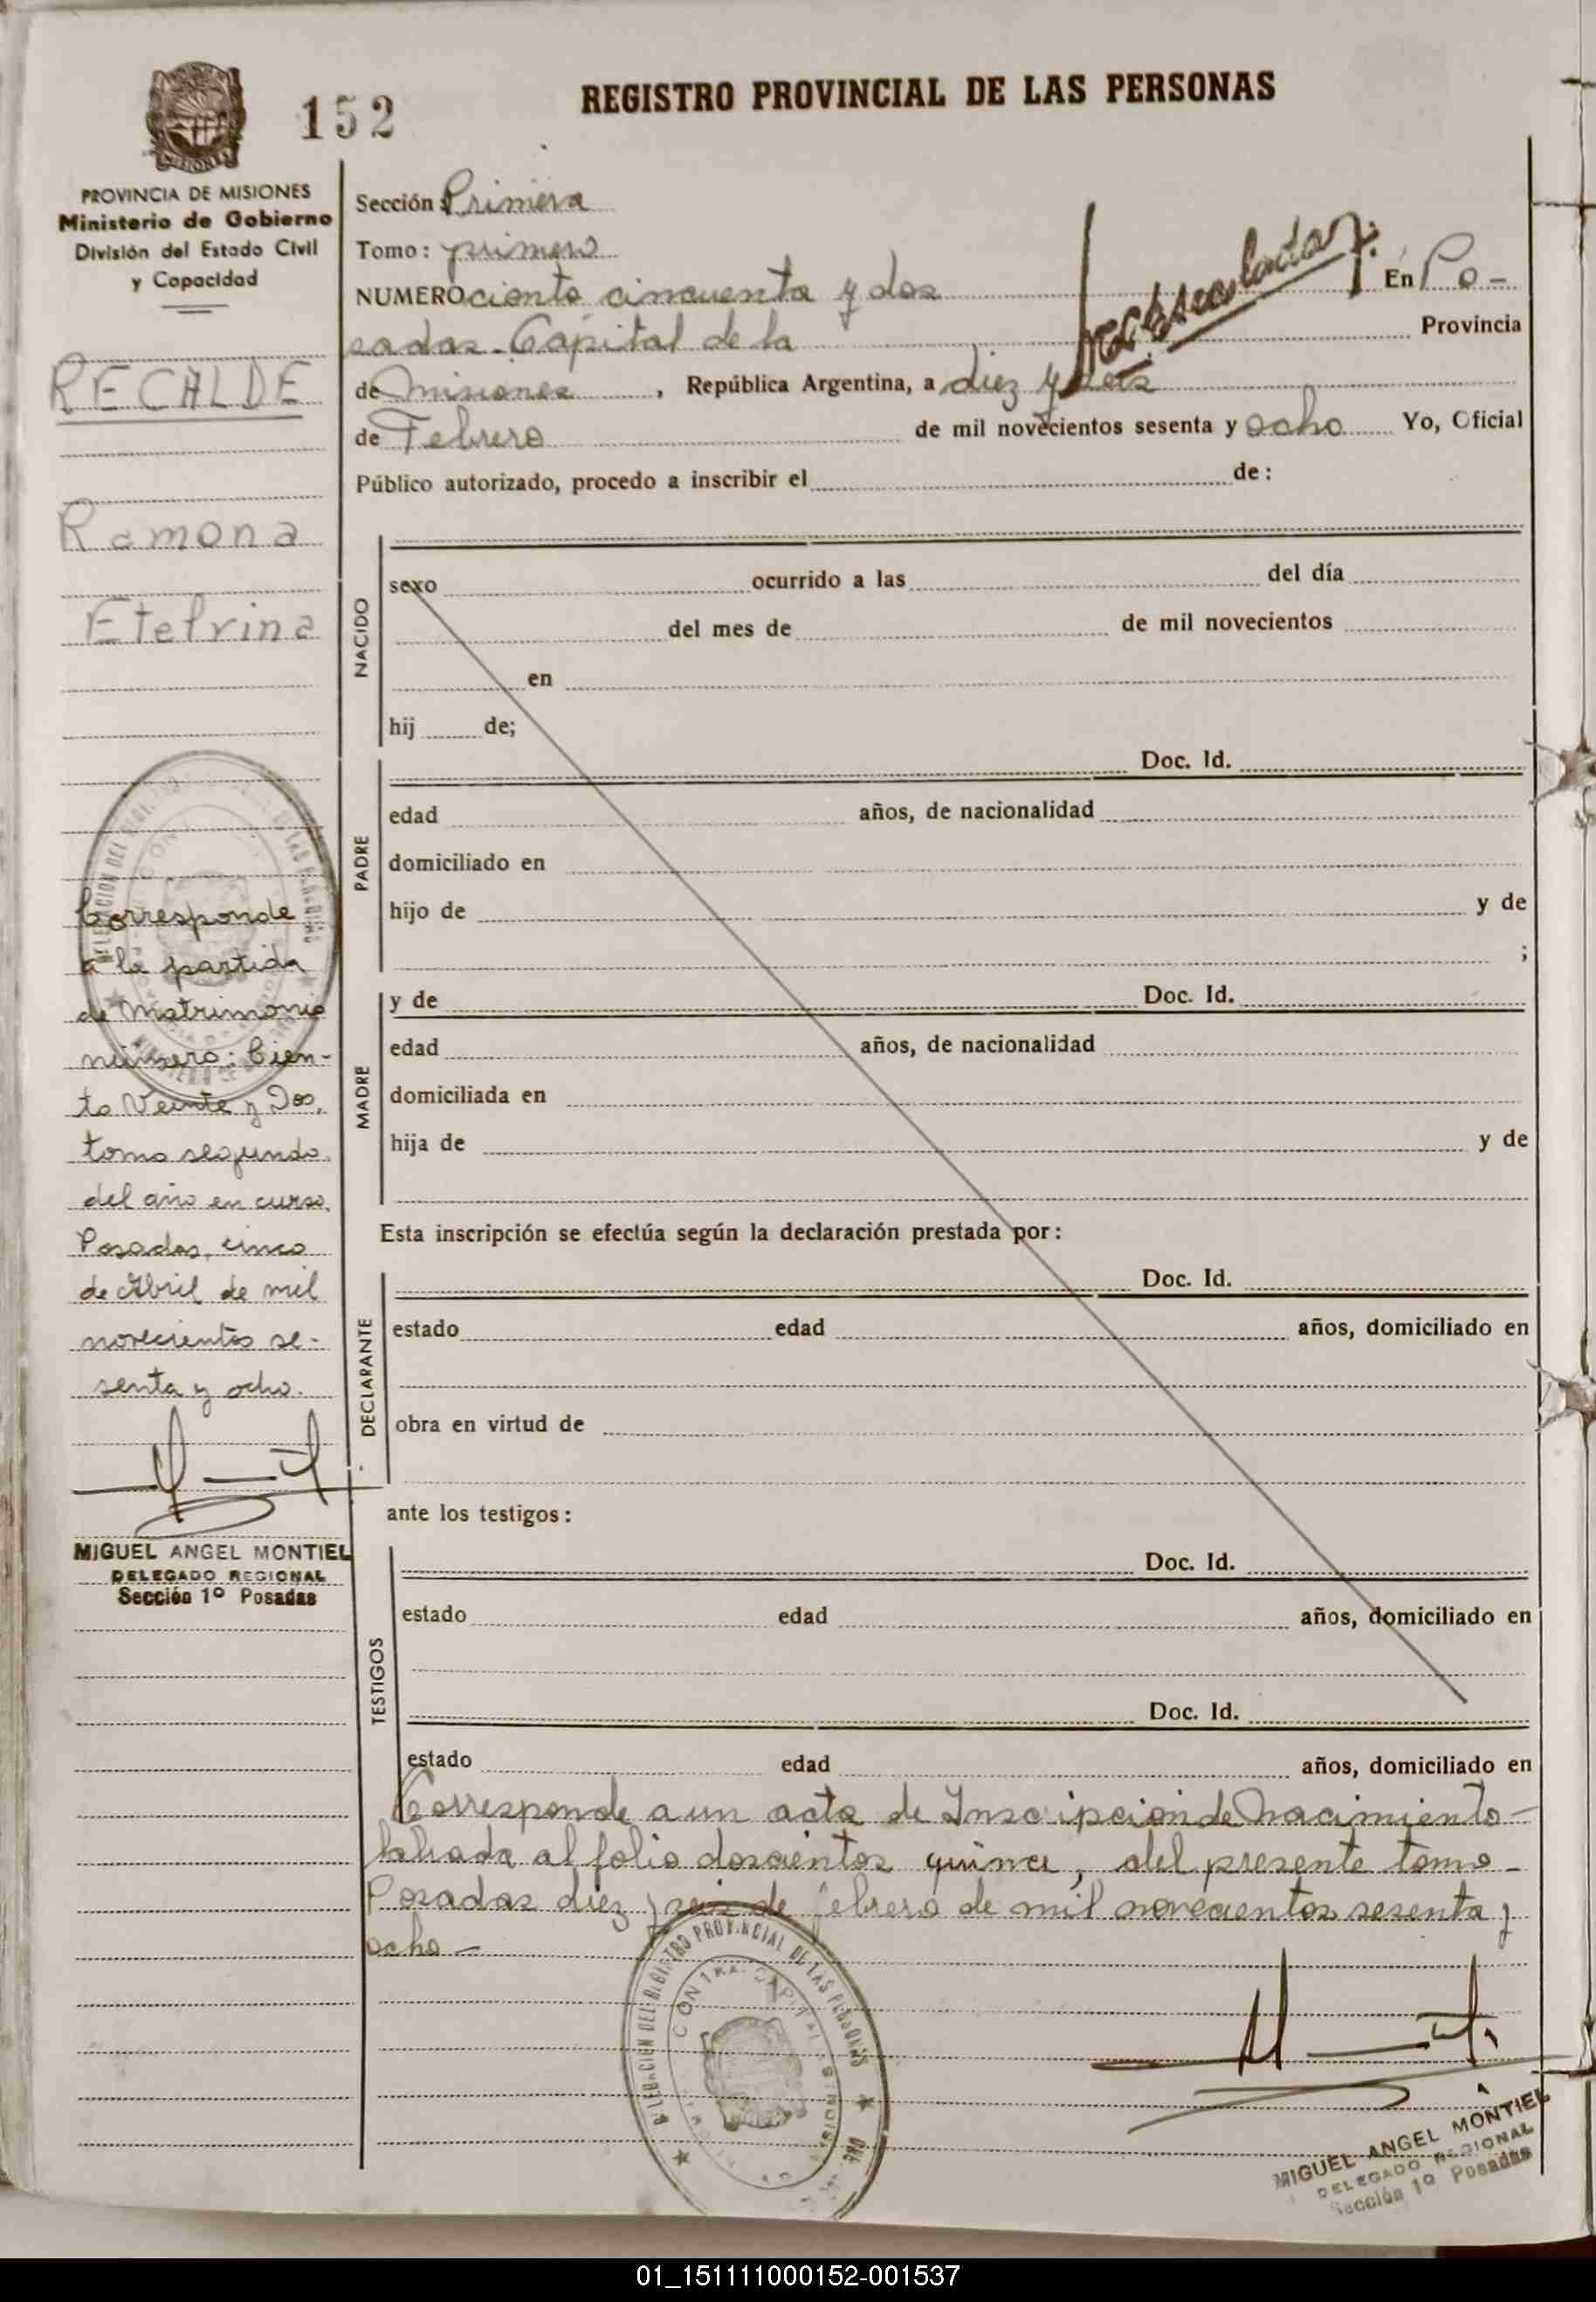 152
REGISTRO PROVINCIAL DE LAS PERSONAS
MISIONES
PROVINCIA DE MISIONES
Ministerio de Gobierno
División del Estado Civil
y Capacidad
RECALDE
Ramona
Etelvina
Corresponde
a la partida
de Matrimonio
número: Cien-
to Veinte y Dos,
tomo segundo
del año en curso,
Posadas, cinco
de Abril de mil
novecientos se-
senta y ocho.
MIGUEL ANGEL MONTIEL
DELEGADO REGIONAL
Sección 1º Posadas
Sección: Primera
Tomo: primero
NUMERO ciento cincuenta y dos En Po-
sadas. Capital de la Provincia
de Misiones, República Argentina, a diez y seis
de Febrero de mil novecientos sesenta y ocho Yo, Oficial
Público autorizado, procedo a inscribir el de:
NACIDO
sexo ocurrido a las del día
del mes de de mil novecientos
en
hij de;
PADRE
Doc. Id.
edad años, de nacionalidad
domiciliado en
hijo de y de
;
MADRE
y de Doc. Id.
edad años, de nacionalidad
domiciliada en
hija de y de
Esta inscripción se efectúa según la declaración prestada por:
DECLARANTE
Doc. Id.
estado edad años, domiciliado en
obra en virtud de
ante los testigos:
TESTIGOS
Doc. Id.
estado edad años, domiciliado en
Doc. Id.
estado edad años, domiciliado en
Corresponde a un acta de Inscripcion de Nacimiento-
labrada al folio doscientos quince, del presente tomo-
Posadas diez y seis de febrero de mil novecientos sesenta y
ocho-
DELEGACION DEL REGISTRO PROVINCIAL DE LAS PERSONAS
MIGUEL ANGEL MONTIEL
DELEGADO REGIONAL
Sección 1º Posadas
01_151111000152-001537